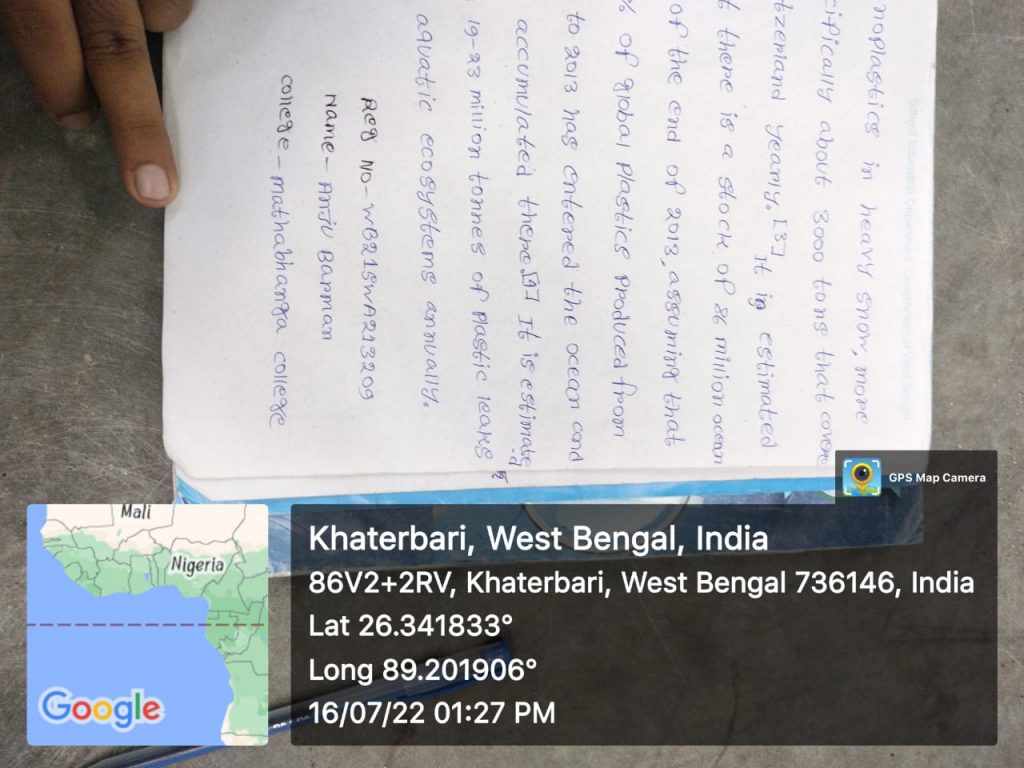 noplastics in heavy snow, more
cifically about 3000 tons that cover
tzerland yearly.[3] It is estimated
t there is a stock of 86 million ocean
of the end of 2013, assuming that
% of global Plastics Produced from
to 2013 has entered the ocean and
accumulated there.[4] It is estimate
-d
19-23 million tonnes of Plastic leaks
aquatic ecosystems annually.
Reg No- WB21SWA213209
Name - Anju Barman
college - mathabhanga college
GPS Map Camera
Mali
Nigeria
Google
Khaterbari, West Bengal, India
86V2+2RV, Khaterbari, West Bengal 736146, India
Lat 26.341833°
Long 89.201906°
16/07/22 01:27 PM